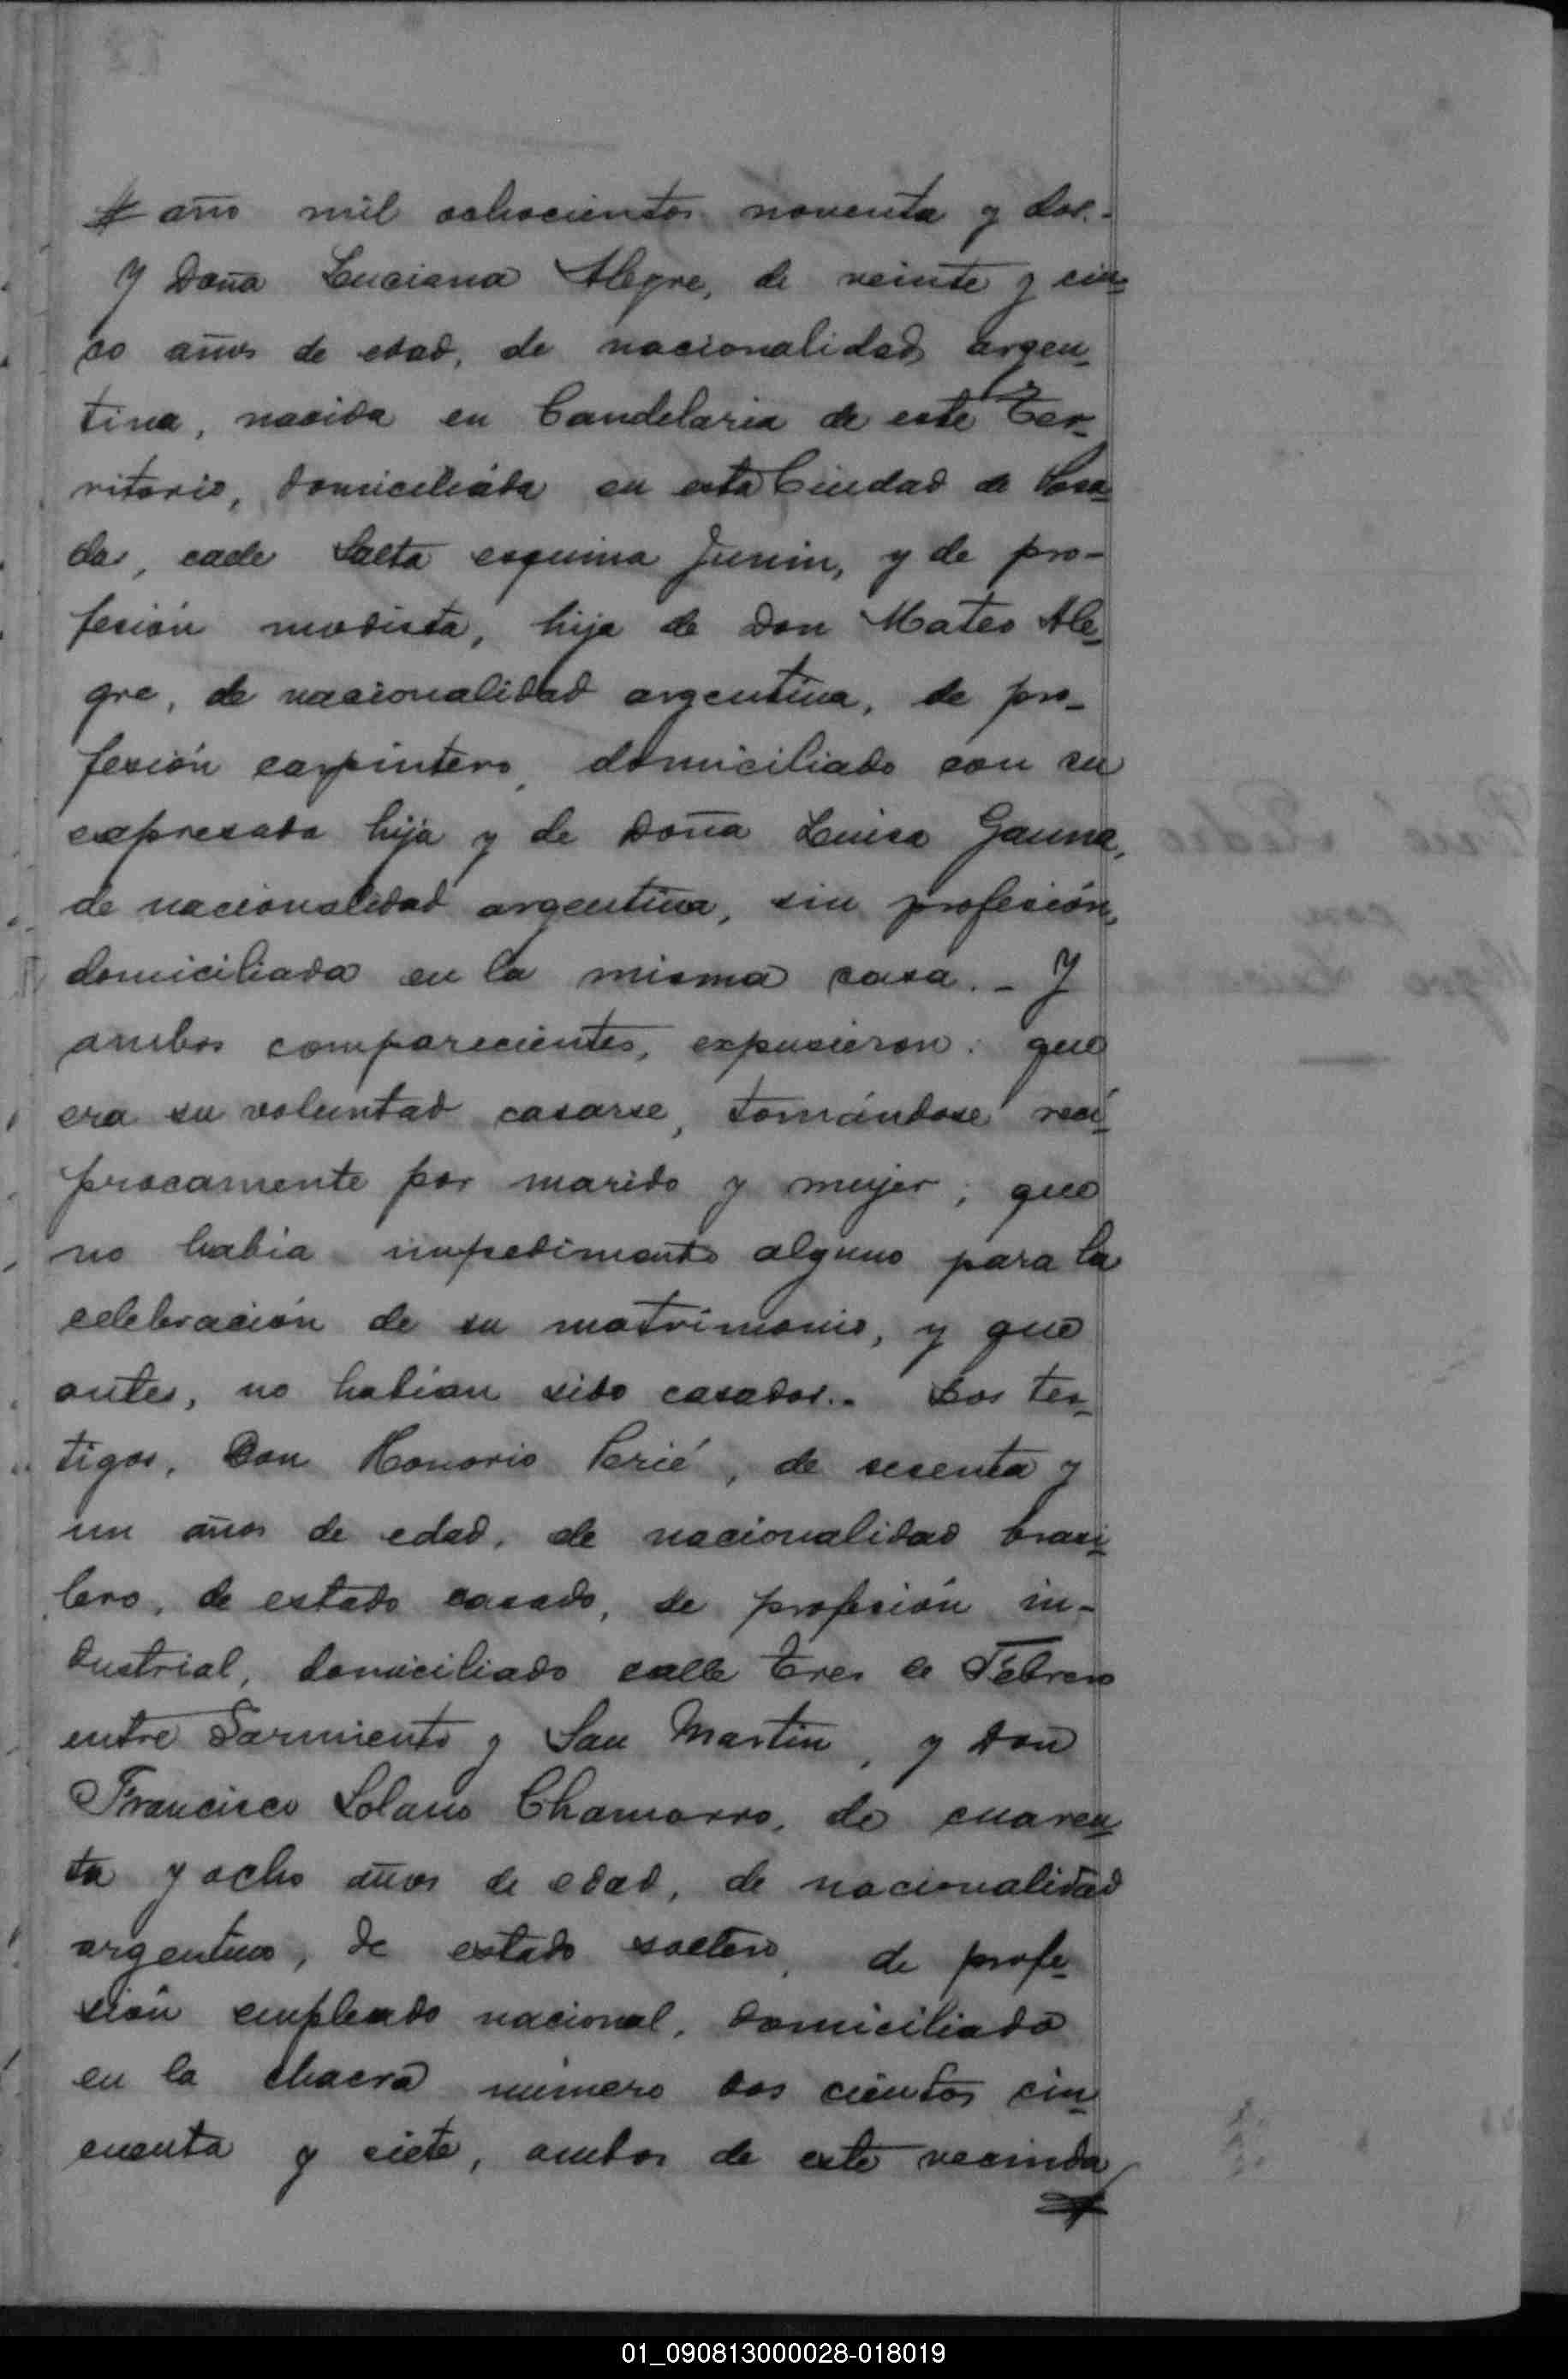 # año mil ochocientos noventa y dos.-
Y Doña Luciana Alegre, de veinte y cin-
co años de edad, de nacionalidad argen-
tina, nacida en Candelaria de este Ter-
ritorio, domiciliada en esta Ciudad de Posa-
das, calle Salta esquina Junin, y de pro-
fesión modista, hija de Don Mateo Ale-
gre, de nacionalidad argentina, de pro-
fesión carpintero, domiciliado con su
expresada hija y de Doña Luisa Gauna,
de nacionalidad argentina, sin profesión,
domiciliada en la misma casa. - Y
ambos comparecientes, expusieron: que
era su voluntad casarse, tomándose reci-
procamente por marido y mujer; que
no habia impedimento alguno para la
celebración de su matrimonio, y que
antes, no habian sido casados.- Los tes-
tigos, Don Honorio Perié, de sesenta y
un años de edad, de nacionalidad brasi-
lero, de estado casado, de profesión in-
dustrial, domiciliado calle Tres de Febrero
entre Sarmiento y San Martin, y Don
Francisco Solano Chamorro, de cuaren-
ta y ocho años de edad, de nacionalidad
argentino, de estado soltero, de profe-
sión empleado nacional, domiciliado
en la chacra número dos cientos cin-
cuenta y siete, ambos de este vecinda
01_090813000028-018019